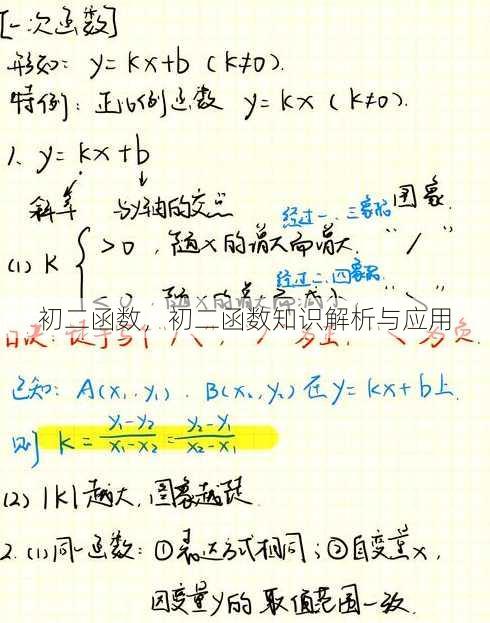 [一次函数]
形如: y=kx+b (k≠0).
特例: 正比例函数 y=kx (k≠0).
1、y=kx+b
斜率 与y轴的交点
经过一、三象限 图象
(1) k { >0, 随x的增大而增大. "/"
经过二、四象限
<0
初二函数，初二函数知识解析与应用
已知: A(x₁, y₁). B(x₂, y₂)在y=kx+b上.
则 k = y₁-y₂/x₁-x₂ = y₂-y₁/x₂-x₁
(2) |k|越大, 图象越陡.
2. (1)同一函数: ①表达方式相同; ②自变量x,
因变量y的取值范围一致.